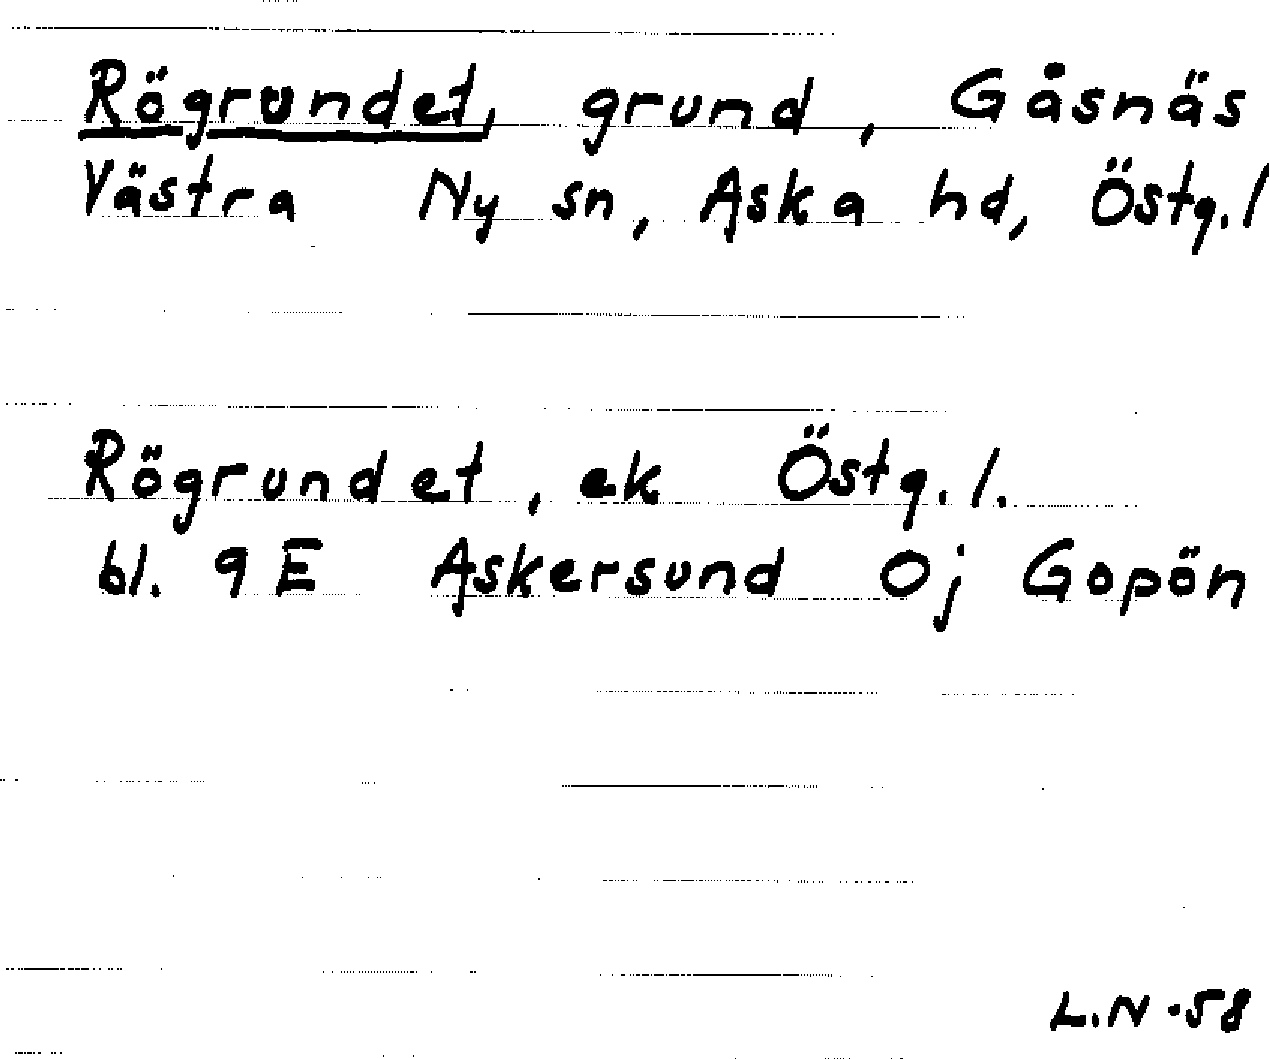 Rögrundet, grund, Gåsnäs
Västra Ny sn, Aska hd, Östg. l
Rögrundet, ek Östg. l.
bl. 9 E Askersund 0j Gopön
L.N -58